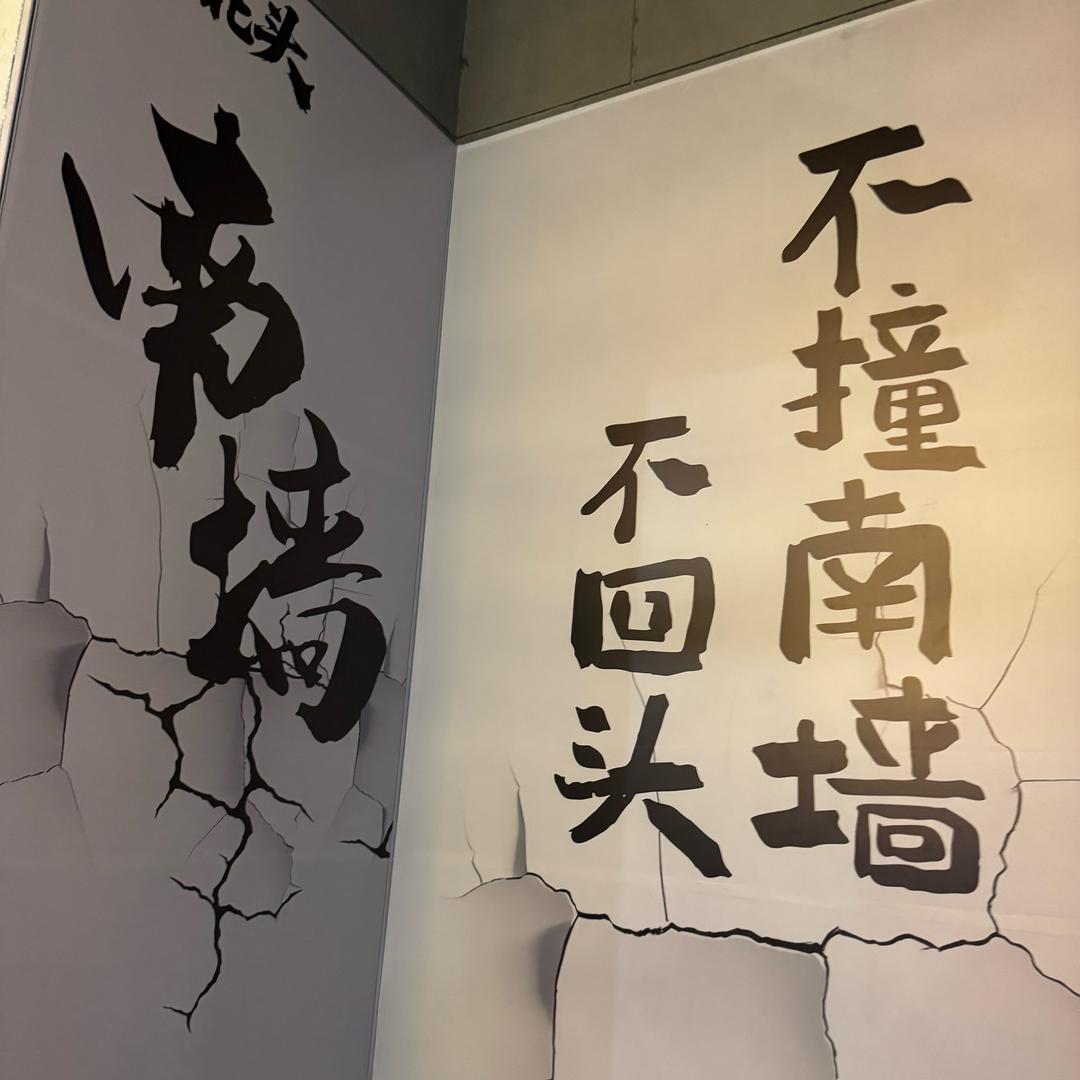 不撞南墙
不回头
头
南墙